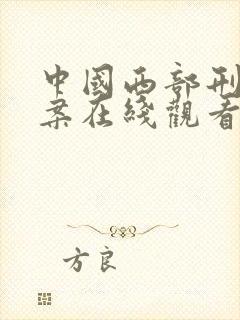 中國西部刑
案在綫觀看
方良